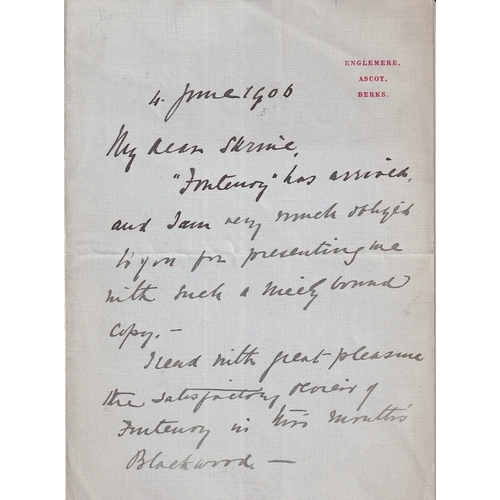 ENGLEMERE,
ASCOT,
BERKS.
4. June 1906
My dear Skrine,
"Fontenoy" has arrived,
and I am very much obliged
to you for presenting me
with such a nicely bound
copy. —
I read with great pleasure
the satisfactory review of
Fontenoy in this month's
Blackwood. —